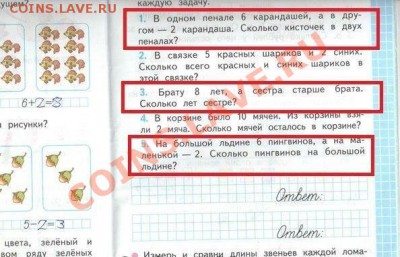 COINS.ЛАVE.RU
каждую задачу.
1. В одном пенале 6 карандашей, а в дру-
гом — 2 карандаша. Сколько кисточек в двух
пеналах?
2. В связке 5 красных шариков и 2 синих.
Сколько всего красных и синих шариков в
этой связке?
3. Брату 8 лет, а сестра старше брата.
Сколько лет сестре?
4. В корзине было 10 мячей. Из корзины взя-
ли 2 мяча. Сколько мячей осталось в корзине?
5. На большой льдине 6 пингвинов, а на ма-
ленькой — 2. Сколько пингвинов на большой
льдине?
Ответ:
Ответ:
Измерь и сравни длины звеньев каждой лома-
6+2=8
и рисунки?
5-2=3
цвета, зелёный и
вом ряду зелёных
COINS.LAVE.RU